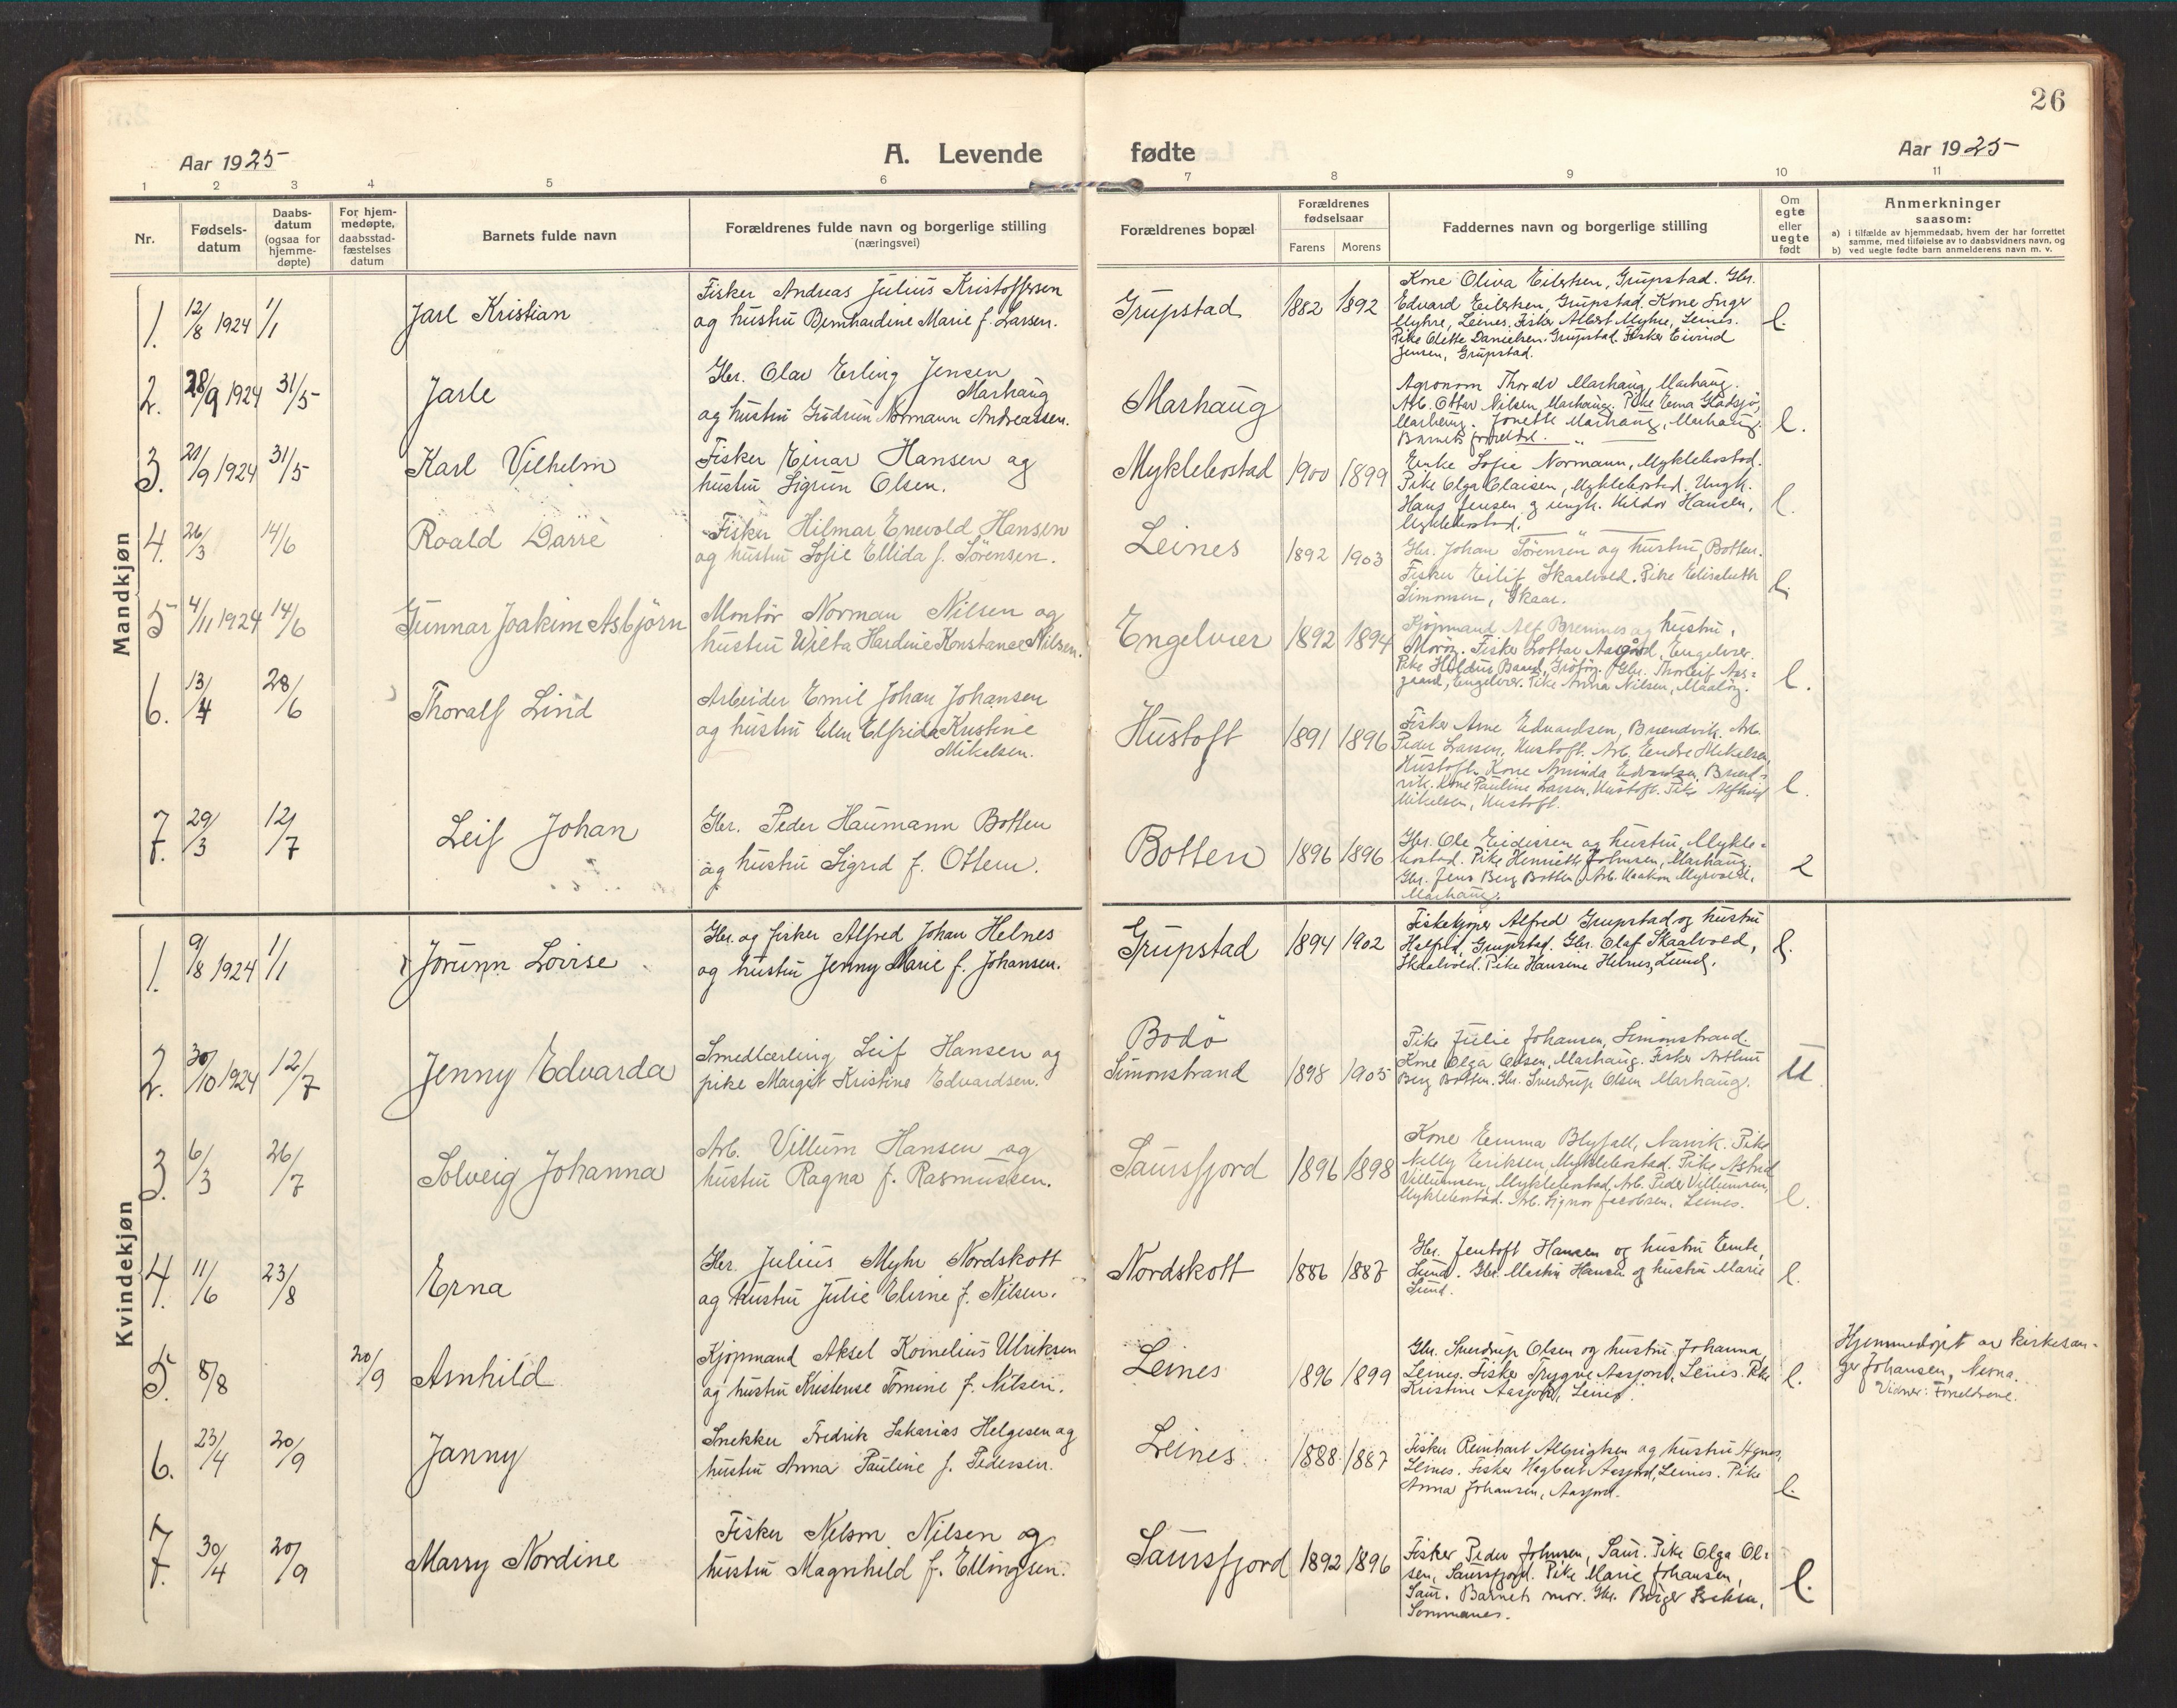 26
Aar 1925
A. Levende fødte
Aar 1925
1 2 3 4 5 6 7 8 9 10 11
Nr.
Fødsels-
datum
Daabs-
datum
(ogsaa for
hjemme-
døpte)
For hjem-
medøpte,
daabsstad-
fæstelses
datum
Barnets fulde navn
Forældrenes fulde navn og borgerlige stilling
(næringsvei)
Forældrenes bopæl
Forældrenes
fødselsaar
Farens Morens
Faddernes navn og borgerlige stilling
Om
egte
eller
uegte
født
Anmerkninger
saasom:
a) i tilfælde av hjemmedaab, hvem der har forrettet
samme, med tilføielse av to daabsvidners navn, og
b) ved uegte fødte barn anmelderens navn m. v.
Mandkjøn
1. 12/8 1924 1/1 Jarl Kristian
Fisker Andreas Julius Kristoffersen
og hustru Bernhardine Marie f. Larsen.
Grupstad 1882 1892
Kone Oliva Eilertsen, Grupstad. Gbr.
Edvard Eilertsen, Grupstad. Kone Inger
Myhre, Leines. Fisker Albert Myhre, Leines.
Pike Olette Danielsen. Grupstad. Fisker Eivind
Jensen, Grupstad.
2. 28/9 1924 31/5 Jarle
Gbr. Olav Erling Jensen
Marhaug
og hustru Gudrun Normann Andreassen.
Marhaug
Agronom Thoralv Marhaug, Marhaug.
Arb. Ottar Nilsen, Marhaug. Pike Erna Gladsjø,
Marhaug. Jonette Marhaug, Marhaug.
Barnets forældre.
3. 21/9 1924 31/5 Karl Vilhelm
Fisker Einar Hansen og
hustru Sigrun Olsen.
Myklebostad 1900 1899
Enke Sofie Normann, Myklebostad.
Pike Olga Claisen, Myklebostad. Ungk.
Hans Jensen og ungk. Hildor Hansen,
Myklebostad.
4. 26/3 14/6 Roald Darre
Fisker Hilmar Enevold Hansen
og hustru Sofie Ellida f. Sørensen.
Leines 1892 1903
Gbr. Johan Sørensen og hustru, Botten.
Fisker Eilif Skaalvold. Pike Elisabeth
Simonsen, Skaar.
5 4/11 1924 14/6 Gunnar Joakim Asbjörn
Montør Norman Nilsen og
hustru Wilta Hardine Konstanse Nilsen.
Engelvær 1892 1894
Kjøpmand Alf Bremnes og hustru,
Fisker Lottar Aasgård, Engelvær.
Gbr. Thorleif Aas-
gaard, Engelvær. Pike Anna Nilsen,
6. 13/4 28/6 Thoralf Lind
Arbeider Emil Johan Johansen
og hustru Elen Elfrida Kristine
Mikalsen.
Hustoft 1891 1896
Fisker Arne Edvardsen, Brændvik. Arb.
Peder Larsen, Hustoft. Arb. Endre Mikalsen,
Hustoft. Kone Aminda Edvardsen, Brænd-
vik. Kone Pauline Larsen, Hustoft. Pike Alfhild
Mikelsen, Hustoft.
7. 29/3 12/7 Leif Johan
Gbr. Peder Haumann Botten
og hustru Sigrid f. Ottem.
Botten 1896 1896
Gbr. Ole Eidissen og hustru, Mykle-
bostad. Pike Henriette Johnsen, Marhaug.
Gbr. Jens Berg Botten. Arb. Haakon Myrvold,
Marhaug.
Kvindekjøn
1. 9/8 1924 1/1 Jorunn Lovise
Gbr. og fisker Alfred Johan Helnes
og hustru Jenny Marie f. Johansen.
Grupstad 1894 1902
Fiskekjøper Alfred Grupstad og hustru
Halfrid, Grupstad. Gbr. Olaf Skaalvold,
Skaalvold. Pike Hansine Helnes, Lund.
2. 30/10 1924 12/7 Jenny Edvarda
Smedlærling Leif Hansen og
pike Margit Kristine Edvardsen.
Bodö
Simonstrand 1898 1905
Pike Julie Johansen, Simonstrand.
Kone Olga Olsen, Marhaug. Fisker Arthur
Berg Botten. Gbr. Sverdrup Olsen Marhaug.
U
3. 6/3 26/7 Solveig Johanna
Arb. Villum Hansen og
hustru Ragna f. Rasmussen.
Saursfjord 1896 1898
Kone Emma Blyfall, Narvik. Pike
Nelly Eriksen, Myklebostad. Pike Astrid
Villumsen, Myklebostad, Arb. Peder Villumsen,
Myklebostad. Arb. Signor Jacobsen, Leines.
4. 11/6 23/8 Erna
Gbr. Julius Myhr Nordskott
og hustru Julie Elvine f. Nilsen.
Nordskott 1886 1887
Gbr. Jentoft Hansen og hustru
Lund. Gbr. Martin Hansen og hustru Marie
Lund.
5. 8/8 20/9 Arnhild
Kjøpmand Aksel Kornelius Ulriksen
og hustru Kristense Tomine f. Nilsen.
Leines 1896 1899
Gbr. Sverdrup Olsen og hustru Johanna,
Leines. Fisker Trygve Aasjord, Leines. Pike
Kristine Aasjord, Leines.
Hjemmedøpt av kirkesan-
ger Johansen,
Vidner: Foreldrene.
6. 23/4 20/9 Janny
Snekker Fredrik Sakarias Helgesen og
hustru Anna Pauline f. Pedersen.
Leines 1888 1887
Fisker Reinhart Albrigtsen og hustru Agnes,
Leines. Fisker Hagbart Aasjord, Leines. Pike
Anna Johansen, Aasjord.
7. 30/4 20/9 Marry Nordine
Fisker Nelson Nilsen og
hustru Magnhild f. Ellingsen.
Saursfjord 1892 1896
Fisker Peder Johnsen, Saur. Pike Olga Ol-
sen, Saursfjord. Pike Marie Johansen,
Saur. Barnets mor. Gbr. Birger
Sommanes.